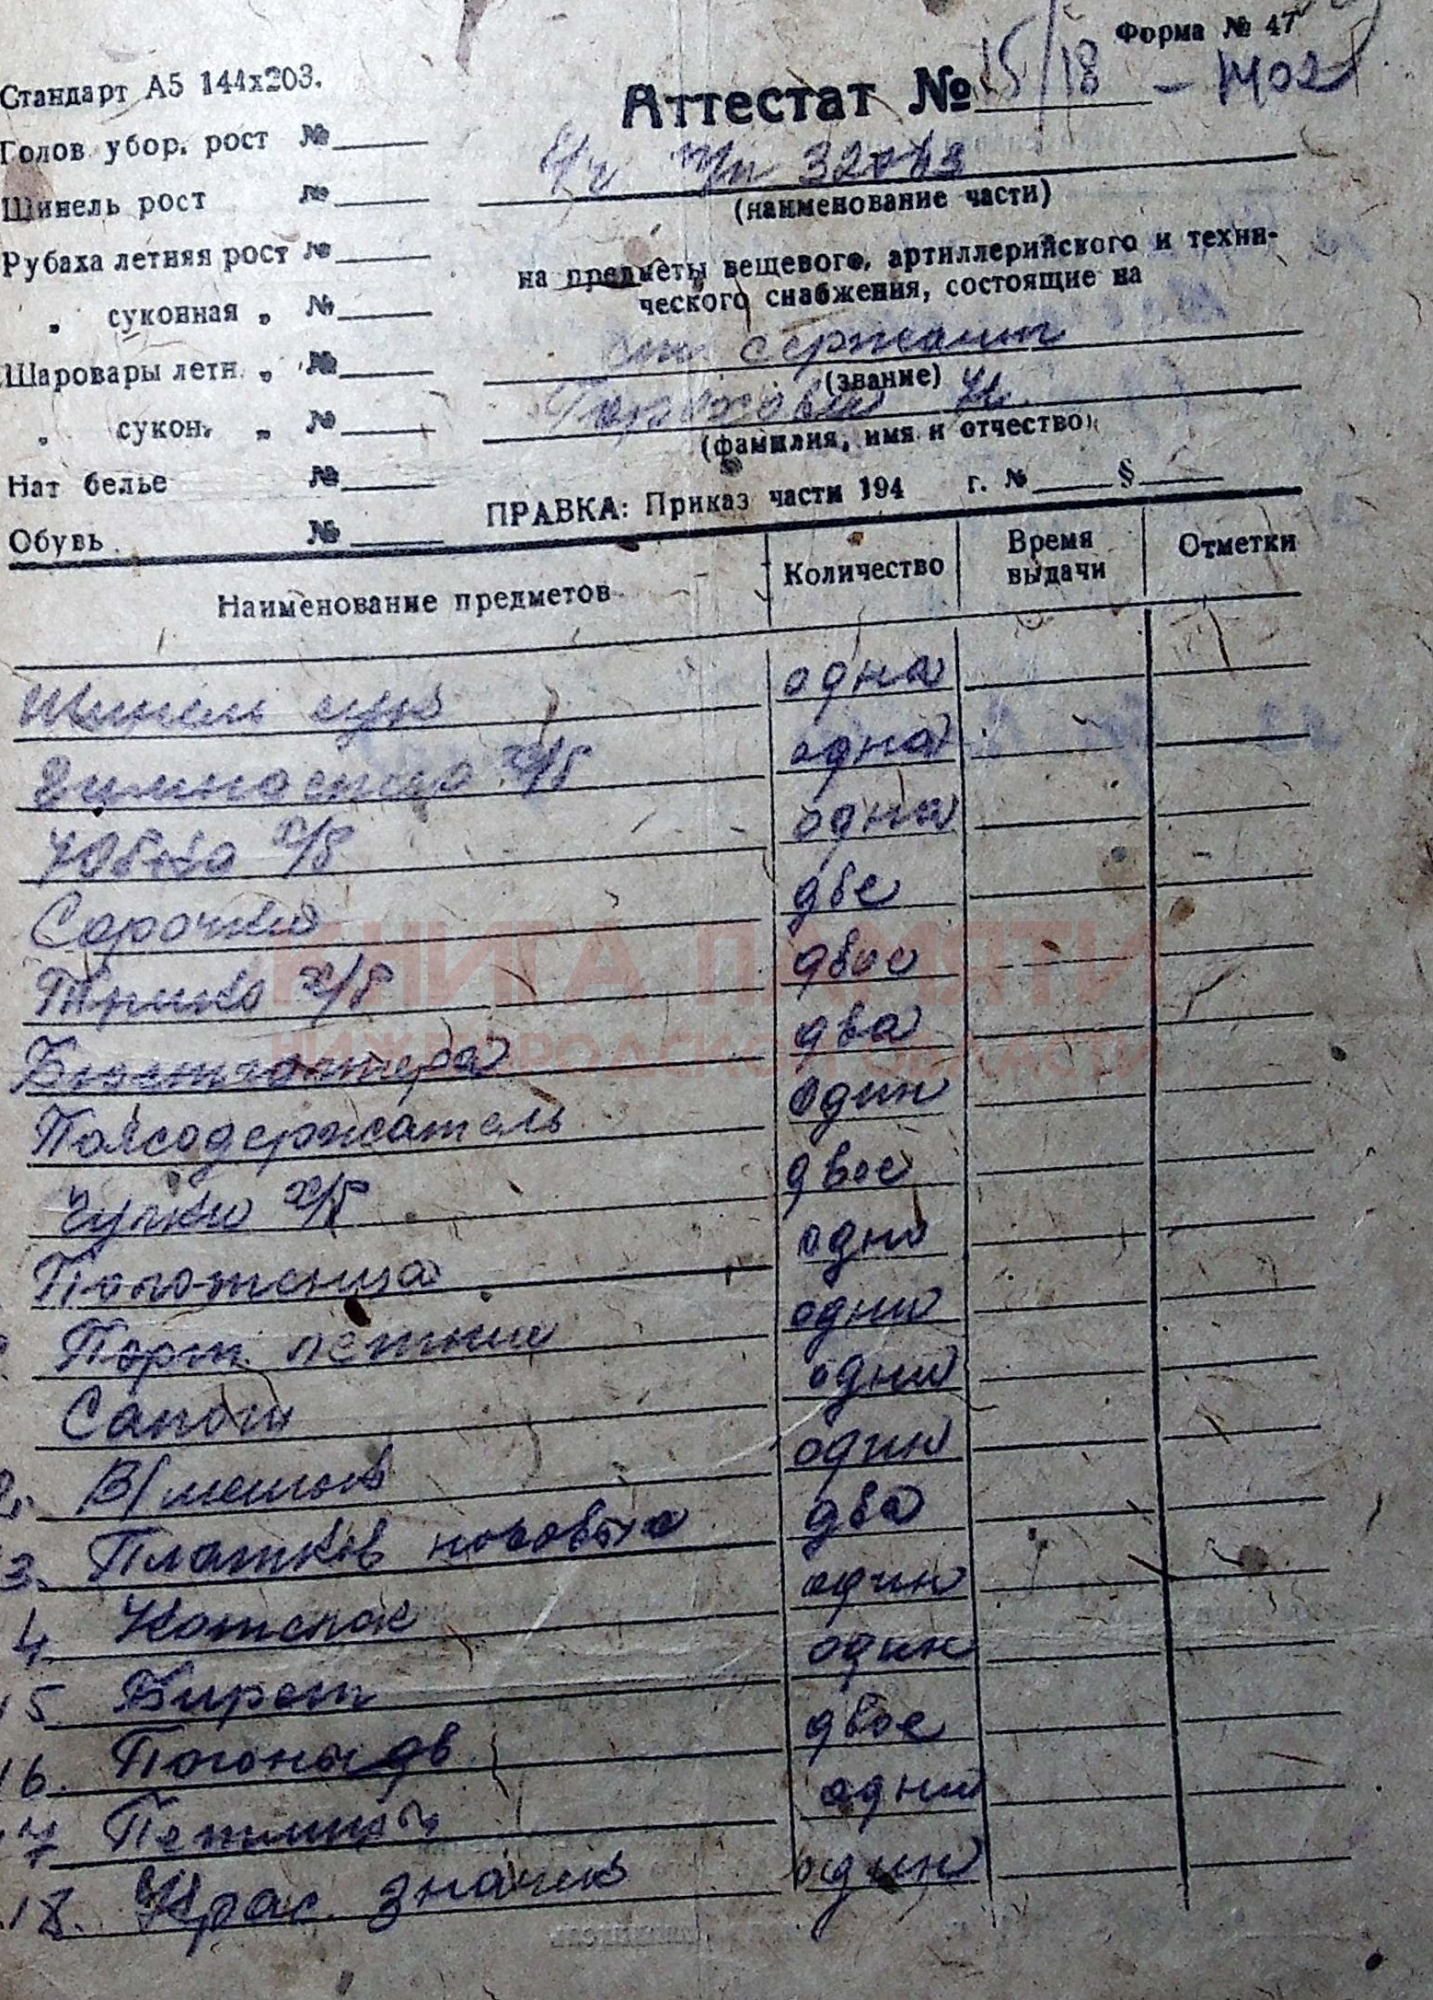 Форма № 47
Стандарт А5 144х203.
Аттестат № 15/18 – 1702
Голов. убор. рост №
в/ч п/п 32063
(наименование части)
Шинель рост №
Рубаха летняя рост №
на предметы вещевого, артиллерийского и техни-
ческого снабжения, состоящие на
„ суконная „ №
ст. сержант
(звание)
Шаровары летн. „ №
(фамилия, имя и отчество)
„ сукон. „ №
Нат белье №
ПРАВКА: Приказ части 194 г. № §
Обувь. №
Наименование предметов Количество Время выдачи Отметки
Шинель сук одна
Гимнастерка х/б одна
Юбка х/б одна
Сорочки две
Трико х/б двое
Бюстгалтера два
Поясодержатель один
Чулки х/б двое
Полотенца одно
Порт. летние одни
Сапоги одни
В/мешок один
3. Платков носовых два
4 Котелок один
15 Бирет один
16. Погоны дв двое
17 Петлицы одни
18. Крас. значек один
КНИГА ПАМЯТИ
НИЖЕГОРОДСКОЙ ОБЛАСТИ